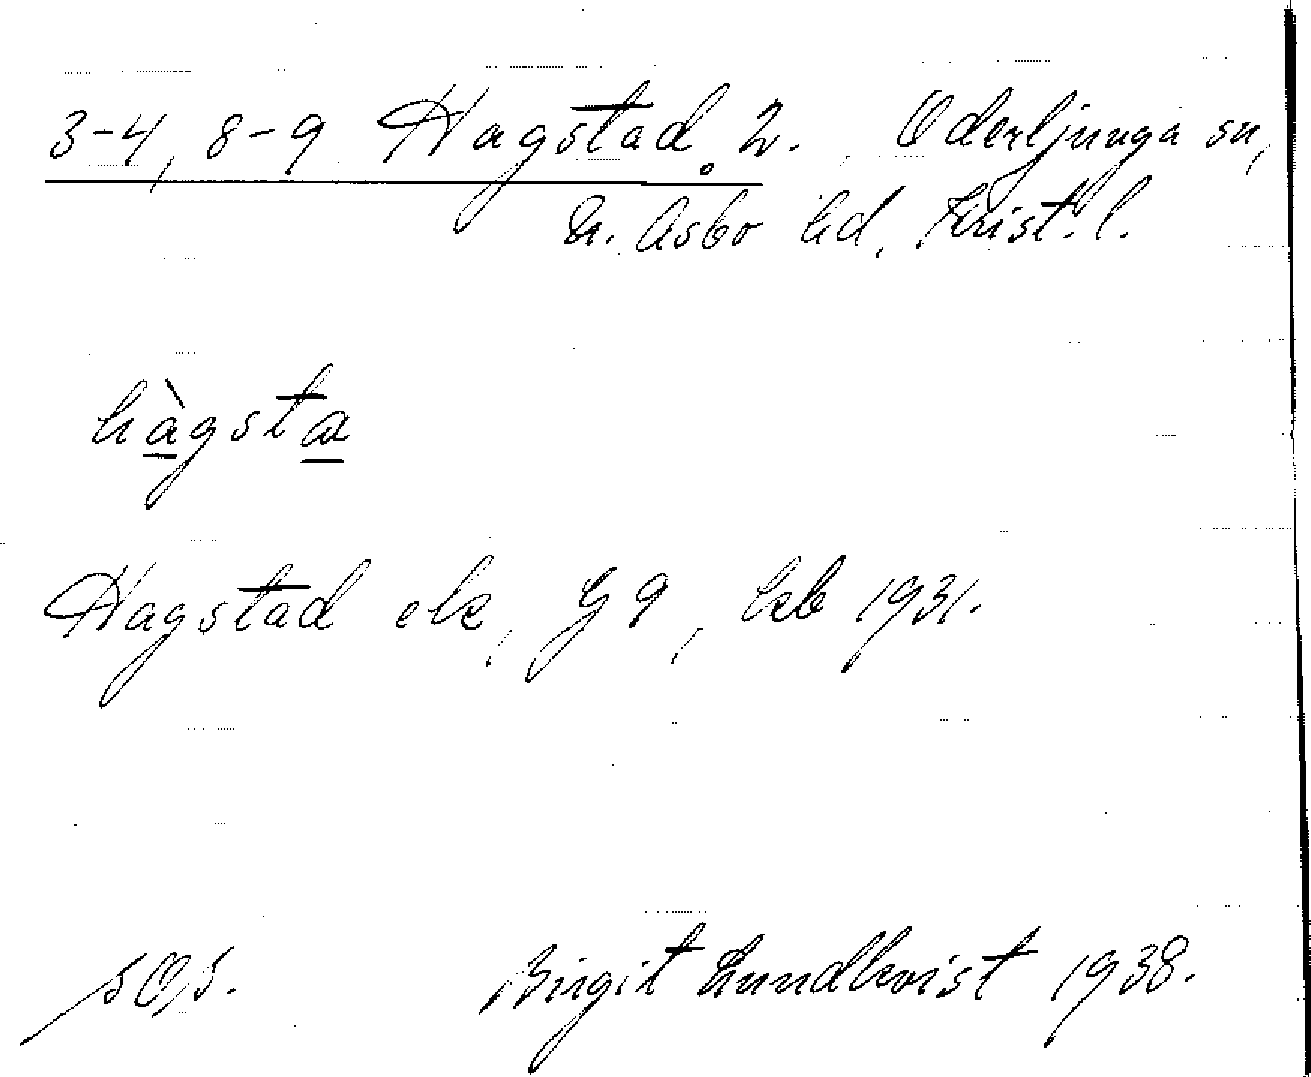 3-4, 8-9 Hagstad 2. Oderljunga sn,
N. Åsbo hd, Krist. l.
hàgsta
Hagstad ek, G9, kb 1931.
Birgit Lundkvist 1938.